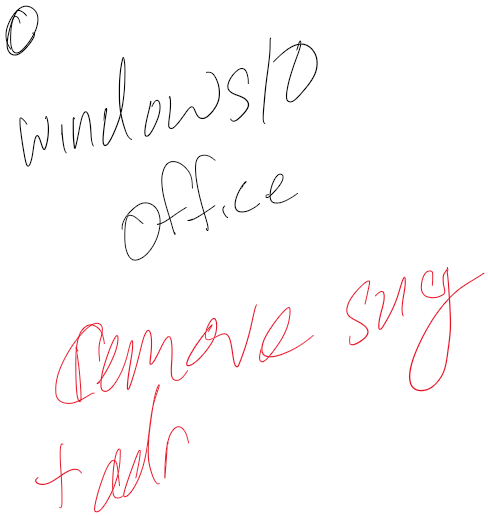 windows10
office
remove sug
+ adr